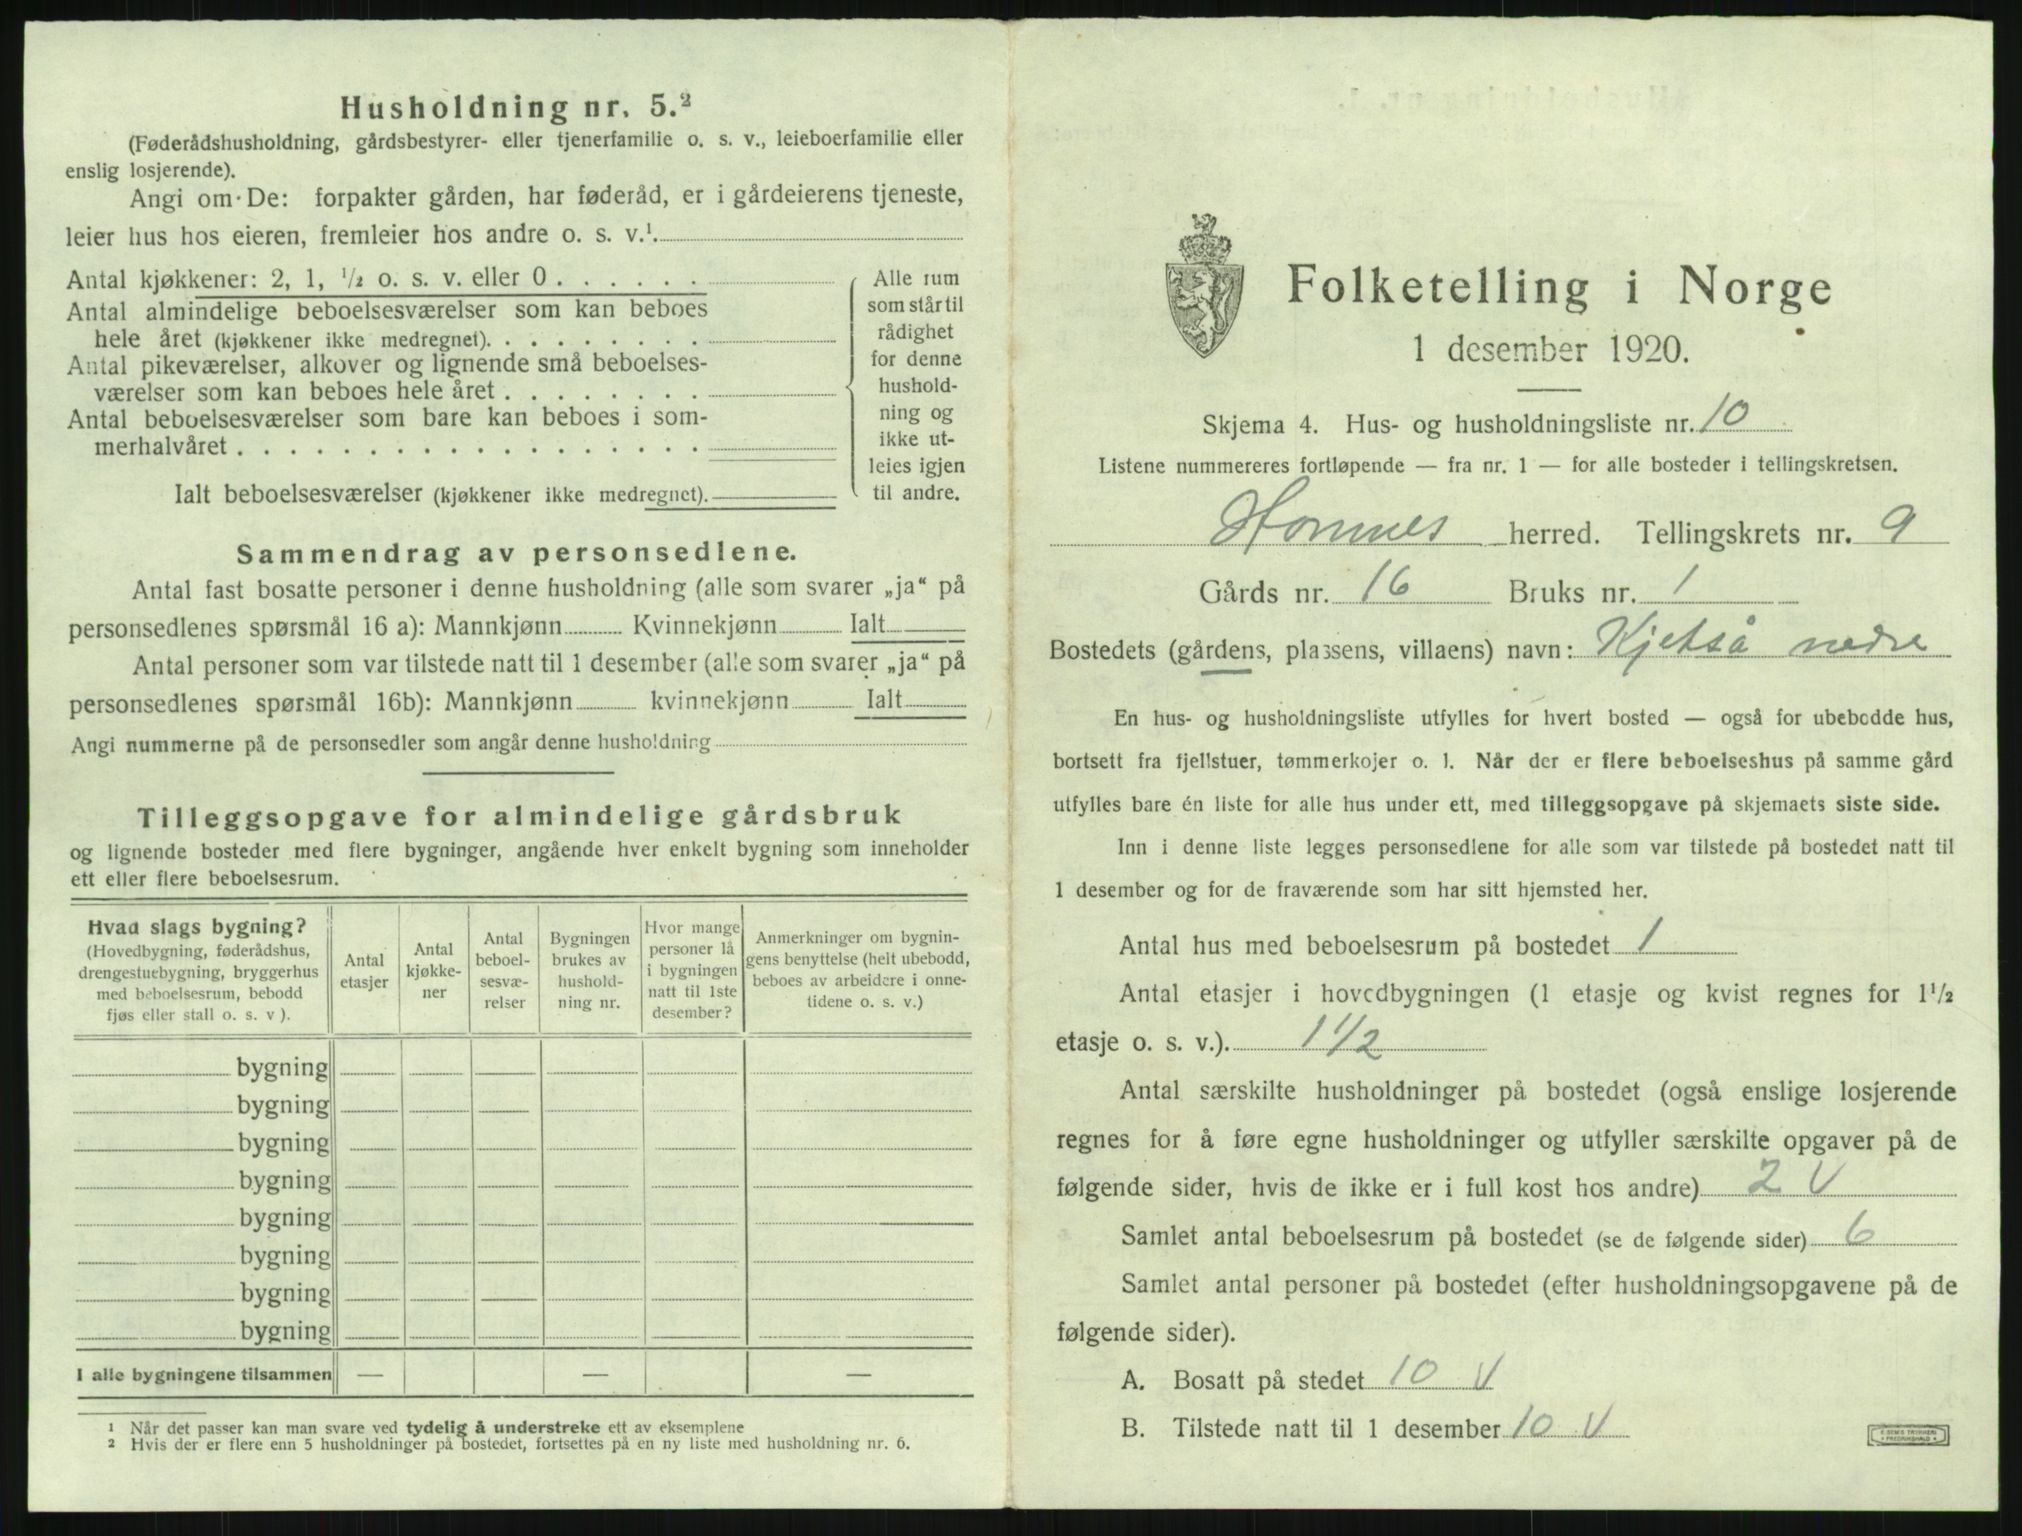 Husholdning nr. 5.²
(Føderådshusholdning, gårdsbestyrer- eller tjenerfamilie o. s. v., leieboerfamilie eller
enslig losjerende).
Angi om De: forpakter gården, har føderåd, er i gårdeierens tjeneste,
leier hus hos eieren, fremleier hos andre o. s. v.¹.
Antal kjøkkener: 2, 1, ½ o. s. v. eller 0 . . . . . .
Antal almindelige beboelsesværelser som kan beboes
hele året (kjøkkener ikke medregnet). . . . . . . . .
Antal pikeværelser, alkover og lignende små beboelses-
værelser som kan beboes hele året . . . . . . . .
Antal beboelsesværelser som bare kan beboes i som-
merhalvåret . . . . . . . . . . . . . . . . . .
Ialt beboelsesværelser (kjøkkener ikke medregnet).
Alle rum
som står til
rådighet
for denne
hushold-
ning og
ikke ut-
leies igjen
til andre.
Sammendrag av personsedlene.
Antal fast bosatte personer i denne husholdning (alle som svarer „ja“ på
personsedlenes spørsmål 16 a): Mannkjønn Kvinnekjønn Ialt
Antal personer som var tilstede natt til 1 desember (alle som svarer „ja“ på
personsedlenes spørsmål 16b): Mannkjønn kvinnekjønn Ialt
Angi nummerne på de personsedler som angår denne husholdning
Tilleggsopgave for almindelige gårdsbruk
og lignende bosteder med flere bygninger, angående hver enkelt bygning som inneholder
ett eller flere beboelsesrum.
Hvad slags bygning?
(Hovedbygning, føderådshus,
drengestuebygning, bryggerhus
med beboelsesrum, bebodd
fjøs eller stall o. s. v ).
Antal
etasjer
Antal
kjøkke-
ner
Antal
beboel-
sesvæ-
relser
Bygningen
brukes av
hushold-
ning nr.
Hvor mange
personer lå
i bygningen
natt til 1ste
desember?
Anmerkninger om bygnin-
gens benyttelse (helt ubebodd,
beboes av arbeidere i onne-
tidene o. s. v.)
bygning
bygning
bygning
bygning
bygning
bygning
bygning
bygning
I alle bygningene tilsammen — — —
¹ Når det passer kan man svare ved tydelig å understreke ett av eksemplene
² Hvis der er flere enn 5 husholdninger på bostedet, fortsettes på en ny liste med husholdning nr. 6.
Folketelling i Norge
1 desember 1920.
Skjema 4. Hus- og husholdningsliste nr. 10
Listene nummereres fortløpende — fra nr. 1 — for alle bosteder i tellingskretsen.
Hornnes herred. Tellingskrets nr. 9
Gårds nr. 16 Bruks nr. 1
Bostedets (gårdens, plassens, villaens) navn: Kjetså nedre
En hus- og husholdningsliste utfylles for hvert bosted — også for ubebodde hus,
bortsett fra fjellstuer, tømmerkojer o. l. Når der er flere beboelseshus på samme gård
utfylles bare én liste for alle hus under ett, med tilleggsopgave på skjemaets siste side.
Inn i denne liste legges personsedlene for alle som var tilstede på bostedet natt til
1 desember og for de fraværende som har sitt hjemsted her.
Antal hus med beboelsesrum på bostedet 1
Antal etasjer i hovedbygningen (1 etasje og kvist regnes for 1½
etasje o. s. v.). 1 1/2
Antal særskilte husholdninger på bostedet (også enslige losjerende
regnes for å føre egne husholdninger og utfyller særskilte opgaver på de
følgende sider, hvis de ikke er i full kost hos andre) 2 V
Samlet antal beboelsesrum på bostedet (se de følgende sider) 6
Samlet antal personer på bostedet (efter husholdningsopgavene på de
følgende sider).
A. Bosatt på stedet 10 V
B. Tilstede natt til 1 desember 10 V